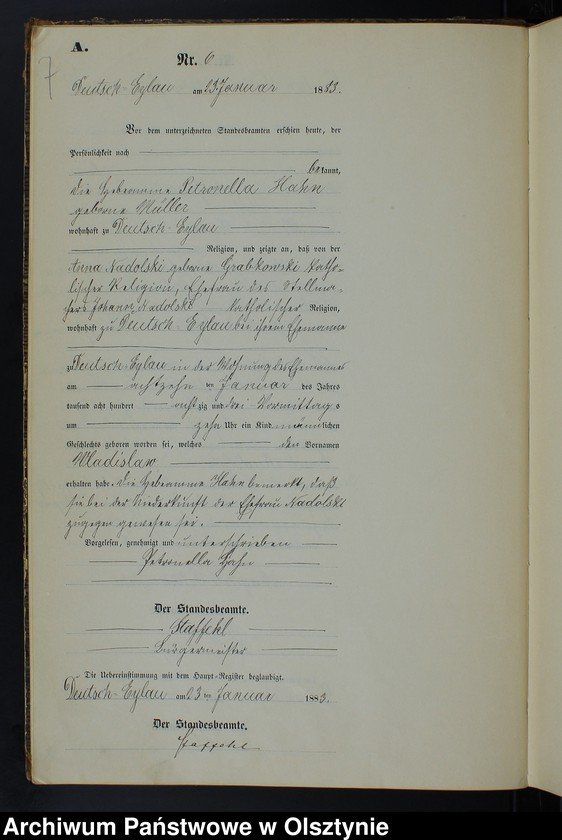 A.
7
Nr. 6
Deutsch-Eylau am 23 Januar 1883.
Vor dem unterzeichneten Standesbeamten erschien heute, der
Persönlichkeit nach
bekannt,
die Hebeamme Petronella Hahn
geborne Müller
wohnhaft zu Deutsch-Eylau
Religion, und zeigte an, daß von der
Anna Nadolski geborne Grabkowski katho-
lischer Religion, Ehefrau des Stellma-
chers Johann Nadolski katholischer Religion,
wohnhaft zu Deutsch-Eylau bei ihrem Ehemanne
zu Deutsch-Eylau in der Wohnung des Ehemannes
am achtzehn ten Januar des Jahres
tausend acht hundert achtzig und drei Vormittags
um zehn Uhr ein Kind männlichen
Geschlechts geboren worden sei, welches den Vornamen
Wladislaw
erhalten habe. Die Hebeamme Hahn bemerkt, daß
sie bei der Niederkunft der Ehefrau Nadolski
zugegen gewesen sei.
Vorgelesen, genehmigt und unterschrieben
Petronella Hahn
Der Standesbeamte.
Staffehl
Bürgermeister
Die Uebereinstimmung mit dem Haupt-Register beglaubigt.
Deutsch-Eylau am 23 ten Januar 1883.
Der Standesbeamte.
Staffehl
Archiwum Państwowe w Olsztynie